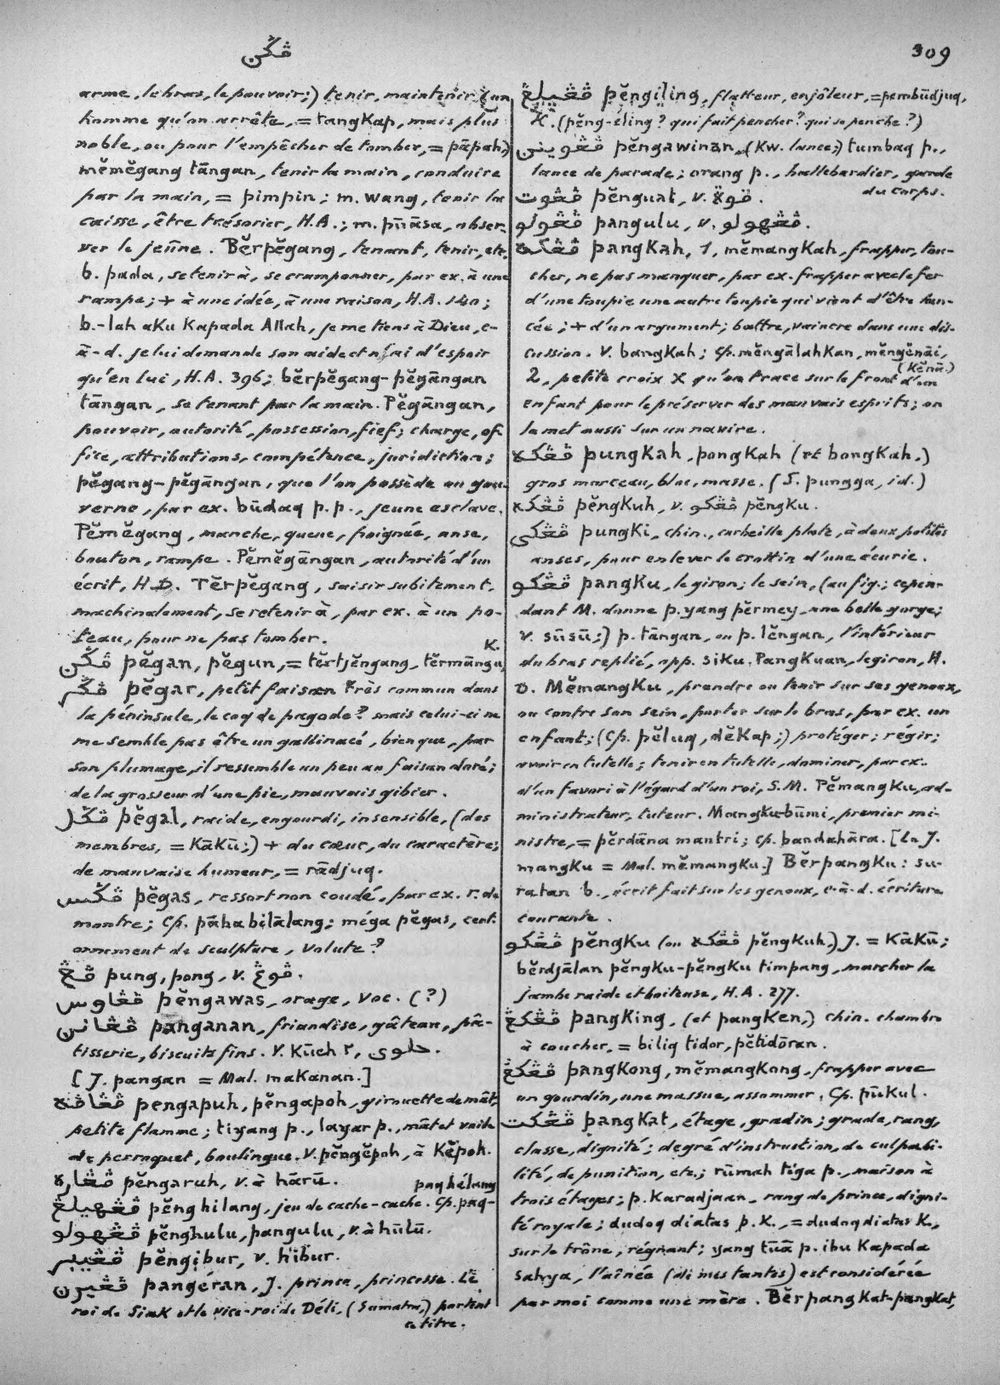 ڤݢن
309
arme, le bras, le pouvoir;) tenir, maintenir (un
homme qu'on arrête, = tangkap, mais plus
noble, ou pour l'empêcher de tomber, = pāpah;)
mĕmĕgang tāngan, tenir la main, conduire
par la main, = pimpin; m. wang, tenir la
caisse, être trésorier, H.A.; m. pūāsa, obser-
ver le jeûne. Bĕrpĕgang, tenant, tenir, etc.
b. pada, se tenir à, se cramponner, par ex. à une
rampe; + à une idée, à une raison, H.A. 140;
b.-lah aku kapada Allah, je me tiens à Dieu, c-
à-d. je lui demande son aide et n'ai d'espoir
qu'en lui, H.A. 396; bĕrpĕgang-pĕgāngan
tāngan, se tenant par la main. Pĕgāngan,
pouvoir, autorité, possession, fief; charge, of-
fice, attributions, compétence, juridiction;
pĕgang-pĕgāngan, que l'on possède ou gou-
verne, par ex. būdaq p.p., jeune esclave.
Pĕmĕgang, manche, queue, poignée, anse,
bouton, rampe. Pĕmĕgāngan, autorité d'un
écrit, H.D. Tĕrpĕgang, saisir subitement,
machinalement, se retenir à, par ex. à un po-
teau, pour ne pas tomber.
ڤݢن pĕgan, pĕgun, = tĕrtjĕngang, tĕrmāngu, K.
ڤݢر pĕgar, petit faisan très commun dans
la péninsule, le coq de pagode? mais celui-ci ne
me semble pas être un gallinacé, bien que, par
son plumage, il ressemble un peu au faisan doré;
de la grosseur d'une pie, mauvais gibier.
ڤݢل pĕgal, raide, engourdi, insensible, (des
membres, = kākū;) + du cœur, du caractère;
de mauvaise humeur, = rādjuq.
ڤݢس pĕgas, ressort non coudé, par ex. r. de
montre; Cp. pāha bilālang; méga pĕgas, cert.
ornement de sculpture, volute?
ڤڠ pung, pong, v. ڤوڠ.
ڤڠاوس pĕngawas, orage, Voc. (?)
ڤڠانن panganan, friandise, gâteau, pâ-
tisserie, biscuits fins. V. kūeh ٢, حلوى.
[J. pangan = Mal. makanan.]
ڤڠاڤه pengapuh, pĕngapoh, girouette de mât,
petite flamme; tiyang p., layar p., mât et voile
de perroquet, boulingue. V. pĕngĕpoh, à kĕpoh.
ڤڠاره pĕngaruh, v. à hārū.
ڤڠهيلڠ pĕnghilang, jeu de cache-cache. Cp. paq-paq hélang
ڤڠهولو pĕnghulu, pangulu, v. à hūlū.
ڤڠيبر pĕngibur, v. hibur.
ڤڠيرن pangéran, J. prince, princesse. Le
roi de Siak et le vice-roi de Déli, (Sumatra,) portent
ce titre.
ڤڠيليڠ pĕngiling, flatteur, enjôleur, = pembūdjuq,
K. (pĕng-éling? qui fait pencher? qui se penche?)
ڤڠوينن pĕngawinan, (Kw. lance;) tumbaq p.,
lance de parade; orang p., hallebardier, garde
du corps.
ڤڠوت pĕnguat, v. قوة.
ڤڠولو pangulu, v. ڤڠهولو.
ڤڠكه pangkah, 1, mĕmangkah, frapper, tou-
cher, ne pas manquer, par ex. frapper avec le fer
d'une toupie une autre toupie qui vient d'être lan-
cée; + d'un argument; battre, vaincre dans une dis-
cussion. V. bangkah; Cp. mĕngālahkan, mĕngĕnāi, (kĕnā.)
2, petite croix X qu'on trace sur le front d'un
enfant pour le préserver des mauvais esprits; on
la met aussi sur un navire.
ڤڠكه pungkah, pongkah (et bongkah,)
gros morceau, bloc, masse. (S. pungga, id.)
ڤڠكه pĕngkuh, v. ڤڠكو pĕngku.
ڤڠكى pungki, chin., corbeille plate, à deux petites
anses, pour enlever le crottin d'une écurie.
ڤڠكو pangku, le giron; le sein, (au fig.; cepen-
dant M. donne p. yang pĕrmey, une belle gorge;
v. sūsū;) p. tāngan, ou p. lĕngan, l'intérieur
du bras replié, opp. siku. Pangkuan, le giron, H.
D. Mĕmangku, prendre ou tenir sur ses genoux,
ou contre son sein, porter sur le bras, par ex. un
enfant; (Cp. pĕluq, dĕkap;) protéger; régir;
avoir en tutelle; tenir en tutelle, dominer, par ex.
d'un favori à l'égard d'un roi, S.M. Pĕmangku, ad-
ministrateur, tuteur. Mangku-būmi, premier mi-
nistre, = pĕrdāna mantri; cp. bandahāra. [En J.
mangku = Mal. mĕmangku.] Bĕrpangku: su-
ratan b., écrit fait sur les genoux, c-à-d. écriture
courante.
ڤڠكو pĕngku (ou ڤڠكه pĕngkuh,) J. = kākū;
bĕrdjālan pĕngku-pĕngku timpang, marcher la
jambe raide et boiteuse, H.A. 277.
ڤڠكڠ pangking, (et pangken,) chin. chambre
à coucher, = biliq tidor, pĕtidōran.
ڤڠكڠ pangkong, mĕmangkong, frapper avec
un gourdin, une massue, assommer. Cp. pūkul.
ڤڠكت pangkat, étage, gradin; grade, rang,
classe, dignité; degré d'instruction, de culpabi-
lité, de punition, etc.; rūmah tiga p., maison à
trois étages; p. karadjaan, rang de prince, digni-
té royale; dudoq diatas p. k., = dudoq diatas k.,
sur le trône, régnant; yang tūā p. ibu kapada
sahya, l'aînée (de mes tantes) est considérée
par moi comme une mère. Bĕrpangkat-pangkat,